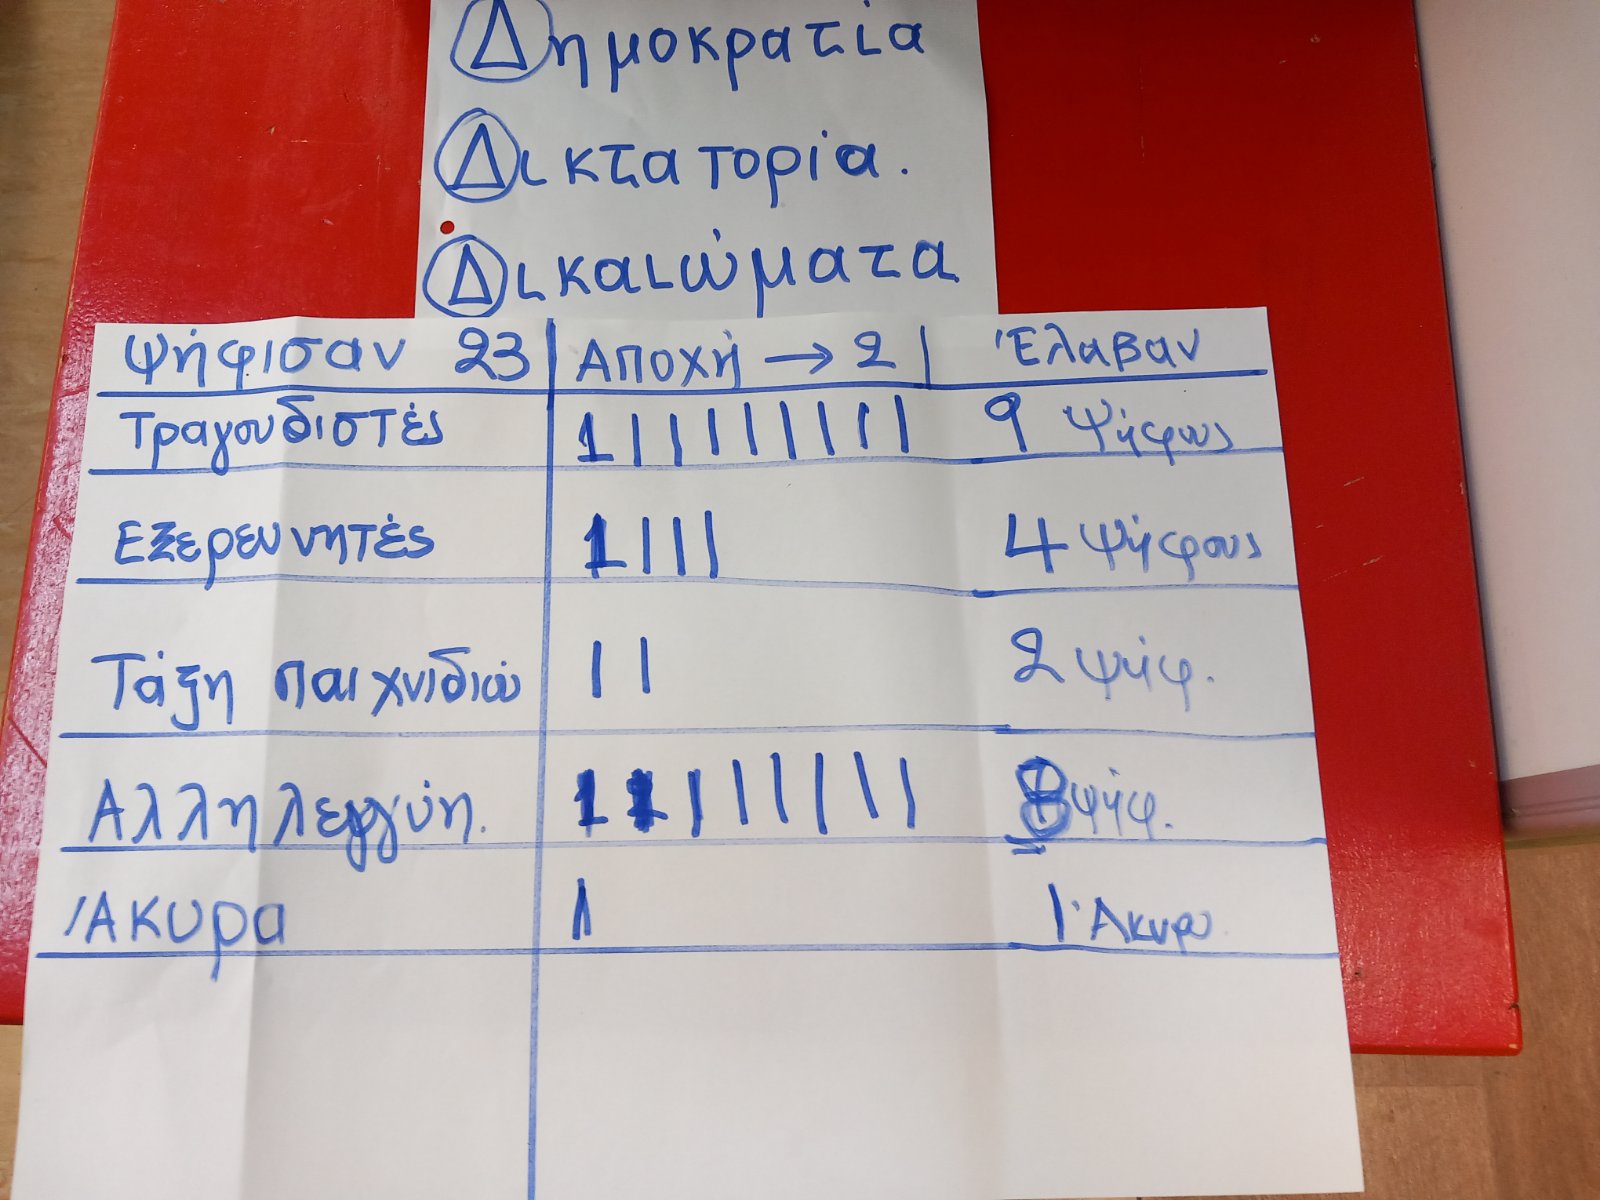 Δημοκρατία
Δικτατορία.
Δικαιώματα
Ψήφισαν 23 | Αποχή → 2 | Έλαβαν
Τραγουδιστές 1 | | | | | | | | 9 Ψήφους
Εξερευνητές 1 | | | 4 ψήφους
Τάξη παιχνιδιώ | | 2 ψήφ.
Αλληλεγγύη. 1 1 | | | | | | 8 ψήφ.
Άκυρα 1 1 Άκυρο